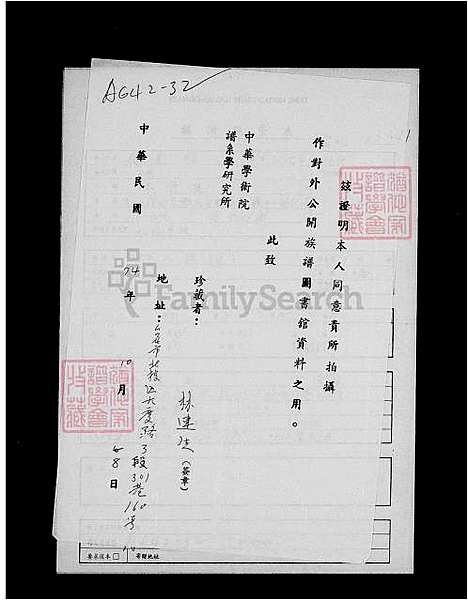 AG42-32
1
茲證明本人同意貴所拍攝
作對外公開族譜圖書館資料之用。
此致
中華學術院
譜系學研究所
珍藏者：林建 (簽章)
地址：台北市北投區大度路3段301巷160號
中華民國 74 年 10 月 8 日
FamilySearch
要求複本 □
有關地址